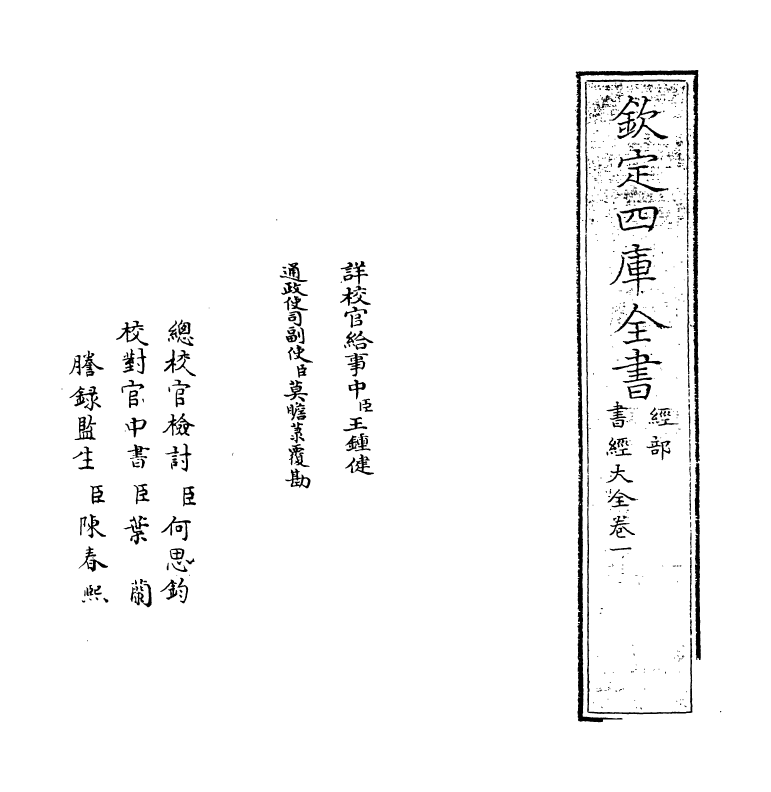 欽定四庫全書
經部
書經大全卷一
詳校官給事中臣王鍾健
通政使司副使臣莫瞻菉覆勘
總校官檢討臣何思鈞
校對官中書臣葉蘭
謄録監生臣陳春熙